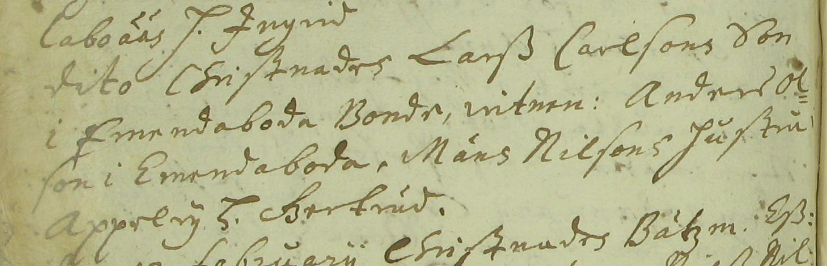 laboåås H. Ingrid
dito Christnades Larß Carlsons Son
i Emendaboda Bonde, vitnen: Anders Ol=
son i Emendaboda, Måns Nilsons Hustru
Appelry H. Gertrud.
februarii Christnades Båtzm. Eß:
Nil: